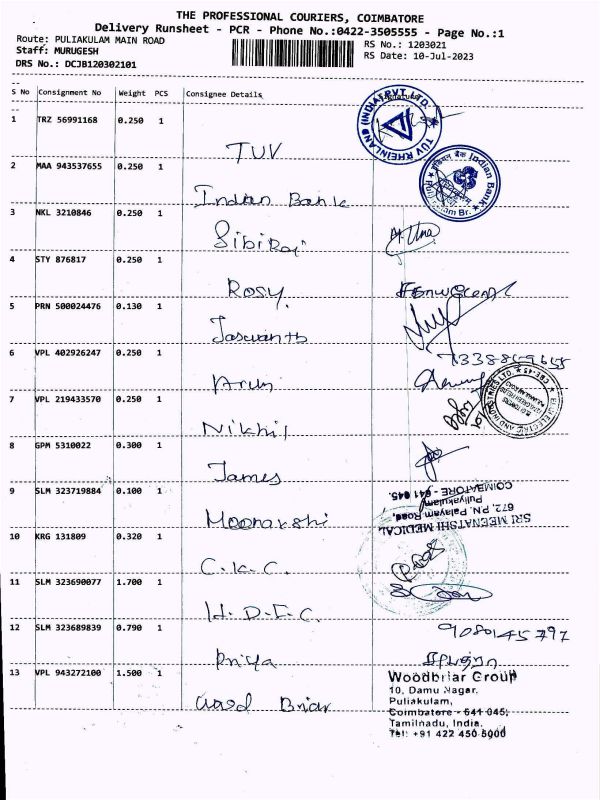 THE PROFESSIONAL COURIERS, COIMBATORE
Delivery Runsheet - PCR - Phone No.:0422-3505555 - Page No.:1
Route: PULIAKULAM MAIN ROAD
RS No.: 1203021
Staff: MURUGESH
RS Date: 10-Jul-2023
DRS No.: DCJB120302101
S No Consignment No Weight PCS Consignee Details
1 TRZ 56991168 0.250 1 TUV
TUV RHEINLAND (INDIA) PVT. LTD.
2 MAA 943537655 0.250 1 Indian Bank
इंडियन बैंक Indian Bank
Puliakulam Br.
3 NKL 3210846 0.250 1 Sibiraj
4 STY 876817 0.250 1 Rosy.
5 PRN 500024476 0.130 1 Jaswanth
6 VPL 402926247 0.250 1 Arun
7 VPL 219433570 0.250 1 Nikhil
8 GPM 5310022 0.300 1 James
9 SLM 323719884 0.100 1 Meenakshi
SRI MEENATSHI MEDICAL
672, P.N. Palayam Road,
Puliyakulam
COIMBATORE - 641 045.
10 KRG 131809 0.320 1 C.K.C.
11 SLM 323690077 1.700 1 H.D.F.C.
12 SLM 323689839 0.790 1 Priya
9080145797
13 VPL 943272100 1.500 1 Wood Briar
Woodbriar Group
10, Damu Nagar,
Puliakulam,
Coimbatore - 641 045,
Tamilnadu, India.
Tel: +91 422 450 5000